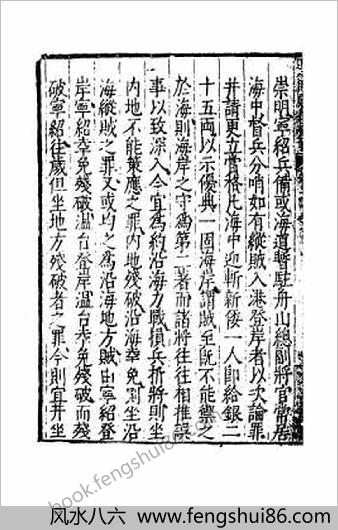 崇明寧紹兵備或海道暫駐舟山總副將官常居
海中督兵分哨如有縱賊入港登岸者以次論罪
并請更立賞格凡海中迎斬新倭一人即給銀二
十五兩以示優典一固海岸謂賊至既不能禦之
於海則海岸之守為第二著而諸將往往相推誤
事以致深入今宜為約沿海力戰損兵折將則坐
內地不能策應之罪內地殘破沿海幸免則坐沿
海縱賊之罪又或均之為沿海地方賊由寧紹登
岸寧紹幸免殘破溫台登岸溫台幸免殘破而殘
破寧紹往歲但坐地方殘破者之罪今則宜并坐
book.fengshui86.com
风水八六：fengshui86.com